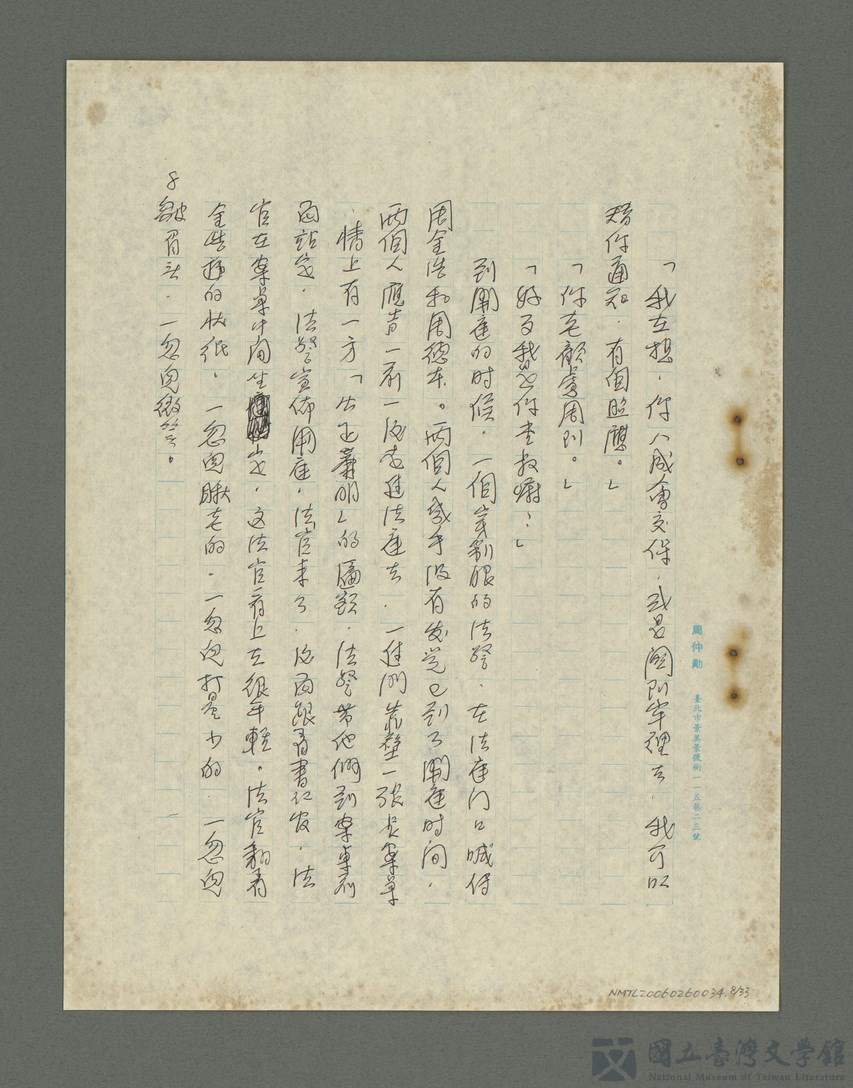 「我在想,你八成會交保,或是關到牢裡去,我可以
替你通知,有個照應。」
「你老顧慮周到。」
「好了我是你
到開庭的时候,一個穿制服的法警,在法庭门口喊傳
周金浩和周德本。兩個人幾乎没有发觉已到了開庭时间,
兩個人應声一前一後走進法庭去,一進門靠壁一張長案桌
,墻上有一方「公正嚴明」的匾額,法警帶他們到案桌前
面站定,法警宣佈開庭,法官来了,後面跟着書记官,法
官在案桌中间坐定,这法官看上去很年輕。法官翻着
金浩的状纸,一忽兒瞅老的,一忽兒打量少的,一忽兒
皱眉头,一忽兒微笑。
8
周仲勳 臺北市景美景後街一一五巷二三號
NMTL20060260034.8/33
國立臺灣文學館
National Museum of Taiwan Literature